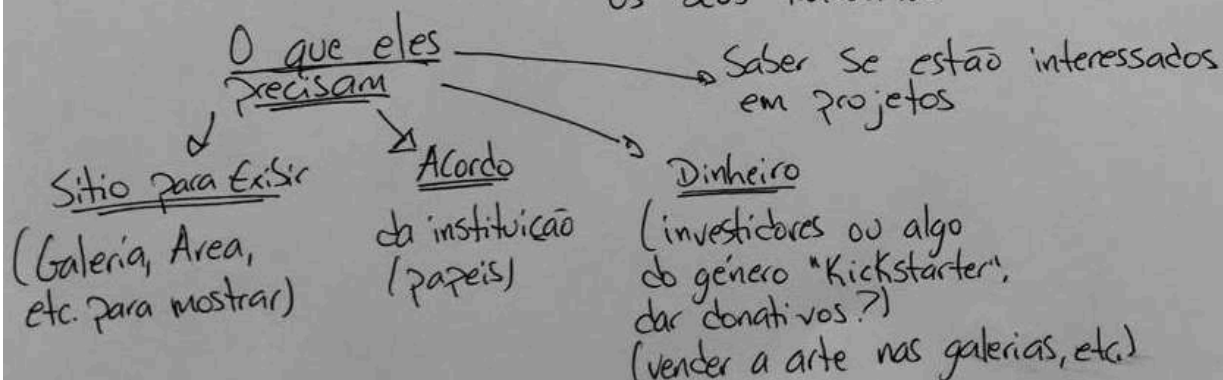 O que eles
precisam
Saber se estão interessados
em projetos
Sitio para Exibir
(Galeria, Area,
etc. para mostrar)
Acordo
da instituição
(papeis)
Dinheiro
(investidores ou algo
do género "Kickstarter",
dar donativos?)
(vender a arte nas galerias, etc.)